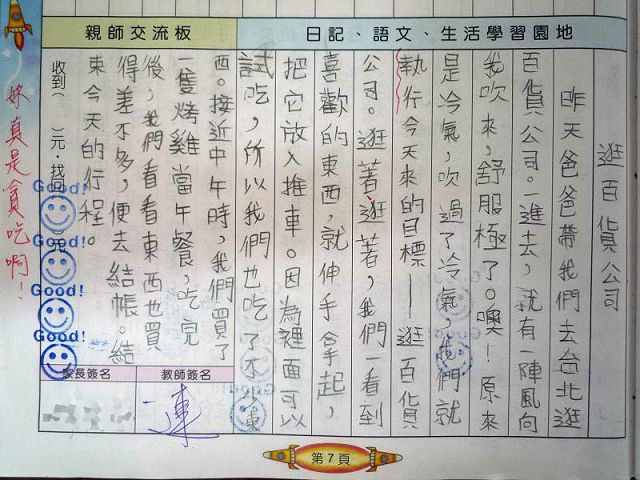 日記、語文、生活學習園地
親師交流板
逛百貨公司
昨天爸爸帶我們去台北逛
百貨公司。一進去,就有一陣風向
我吹來,舒服極了。噢!原來
是冷氣,吹過了冷氣,我們就
執行今天來的目標——逛百貨
公司。逛著逛著,我們一看到
喜歡的東西,就伸手拿起,
把它放入推車。因為裡面可以
試吃,所以我們也吃了不少東
西。接近中午時,我們買了
一隻烤雞當午餐,吃完
後,我們看看東西也買
得差不多,便去結帳。結
束今天的行程。
收到( )元.找回( )元
Good!
Good!
Good!
Good!
妳真是貪吃啊!
教師簽名
家長簽名
第7頁